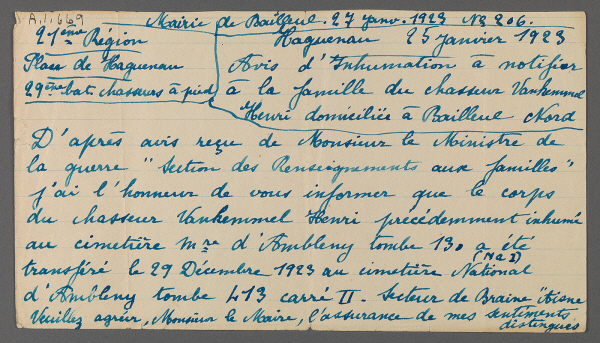 A.1.669
Mairie de Bailleul. 27 janv. 1923 No 206.
21ème Région
Haguenau 25 Janvier 1923
Place de Haguenau
Avis d'Inhumation à notifier
29ème bat. chasseurs à pied
à la famille du chasseur Vankemmel
Henri domiciliée à Bailleul Nord
D'après avis reçu de Monsieur le Ministre de
la guerre "Section des Renseignements aux familles"
j'ai l'honneur de vous informer que le corps
du chasseur Vankemmel Henri précédemment inhumé
au cimetière mre d'Ambleny tombe 130 a été
(No 2)
transféré le 29 Décembre 1923 au cimetière National
d'Ambleny tombe 413 carré II. Secteur de Braine "Aisne
Veuillez agréer, Monsieur le Maire, l'assurance de mes sentiments
distingués